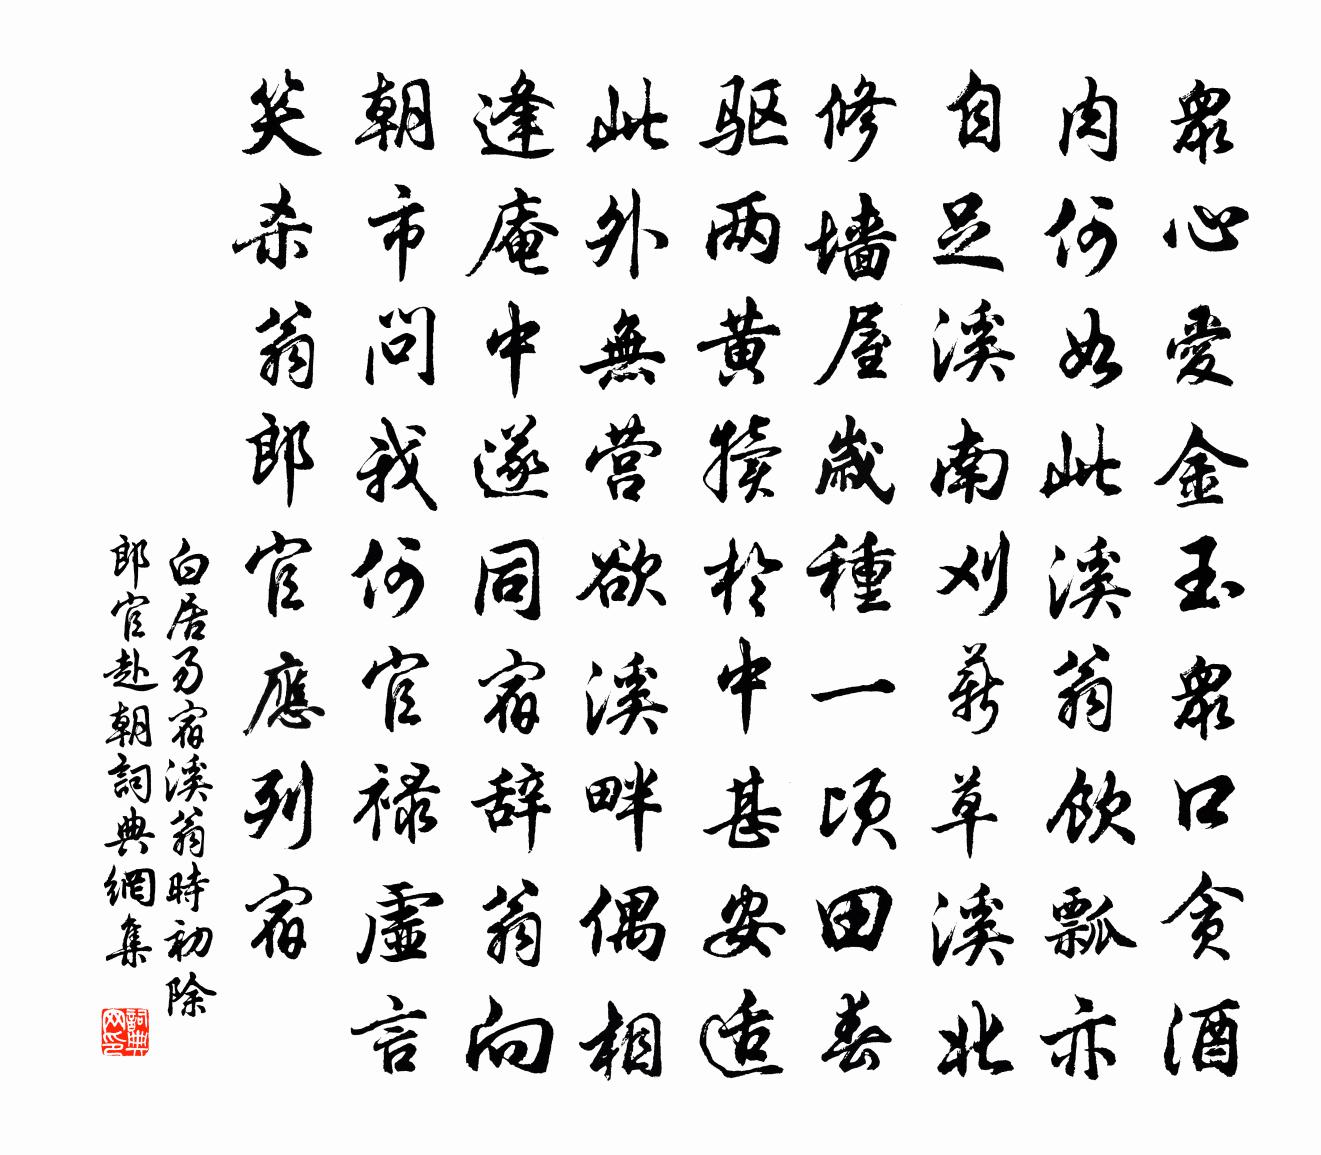 衆心愛金玉衆口貪酒
肉何如此溪翁飲瓢亦
自足溪南刈薪草溪北
修墙屋歲種一頃田春
驱两黄犊於中甚安适
此外無营欲溪畔偶相
逢庵中遂同宿辞翁向
朝市問我何官禄虛言
笑杀翁郎官應列宿
白居易宿溪翁時初除
郎官赴朝詞典網集
詞典网印